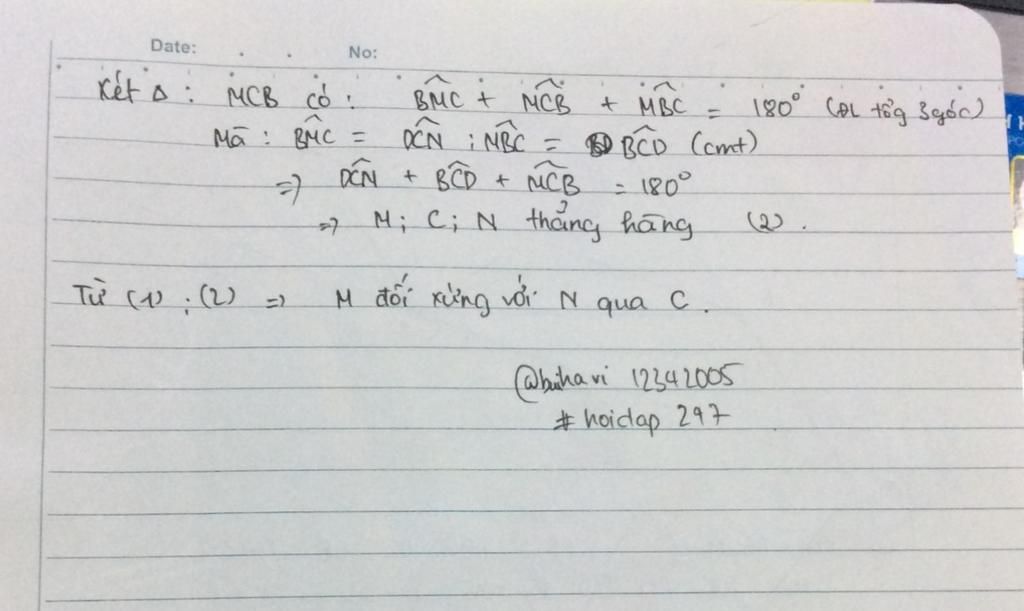 Date: . . No:
Xét Δ : MCB có : B̂MC + M̂CB + M̂BC = 180° (ĐL tổg 3 góc)
Mà : B̂MC = D̂CN ; M̂BC = B̂CD (cmt)
=> D̂CN + B̂CD + M̂CB = 180°
=> M ; C ; N thẳng hàng (2) .
Từ (1) ; (2) => M đối xứng với N qua C .
@buihavi 12342005
# hoidap 247